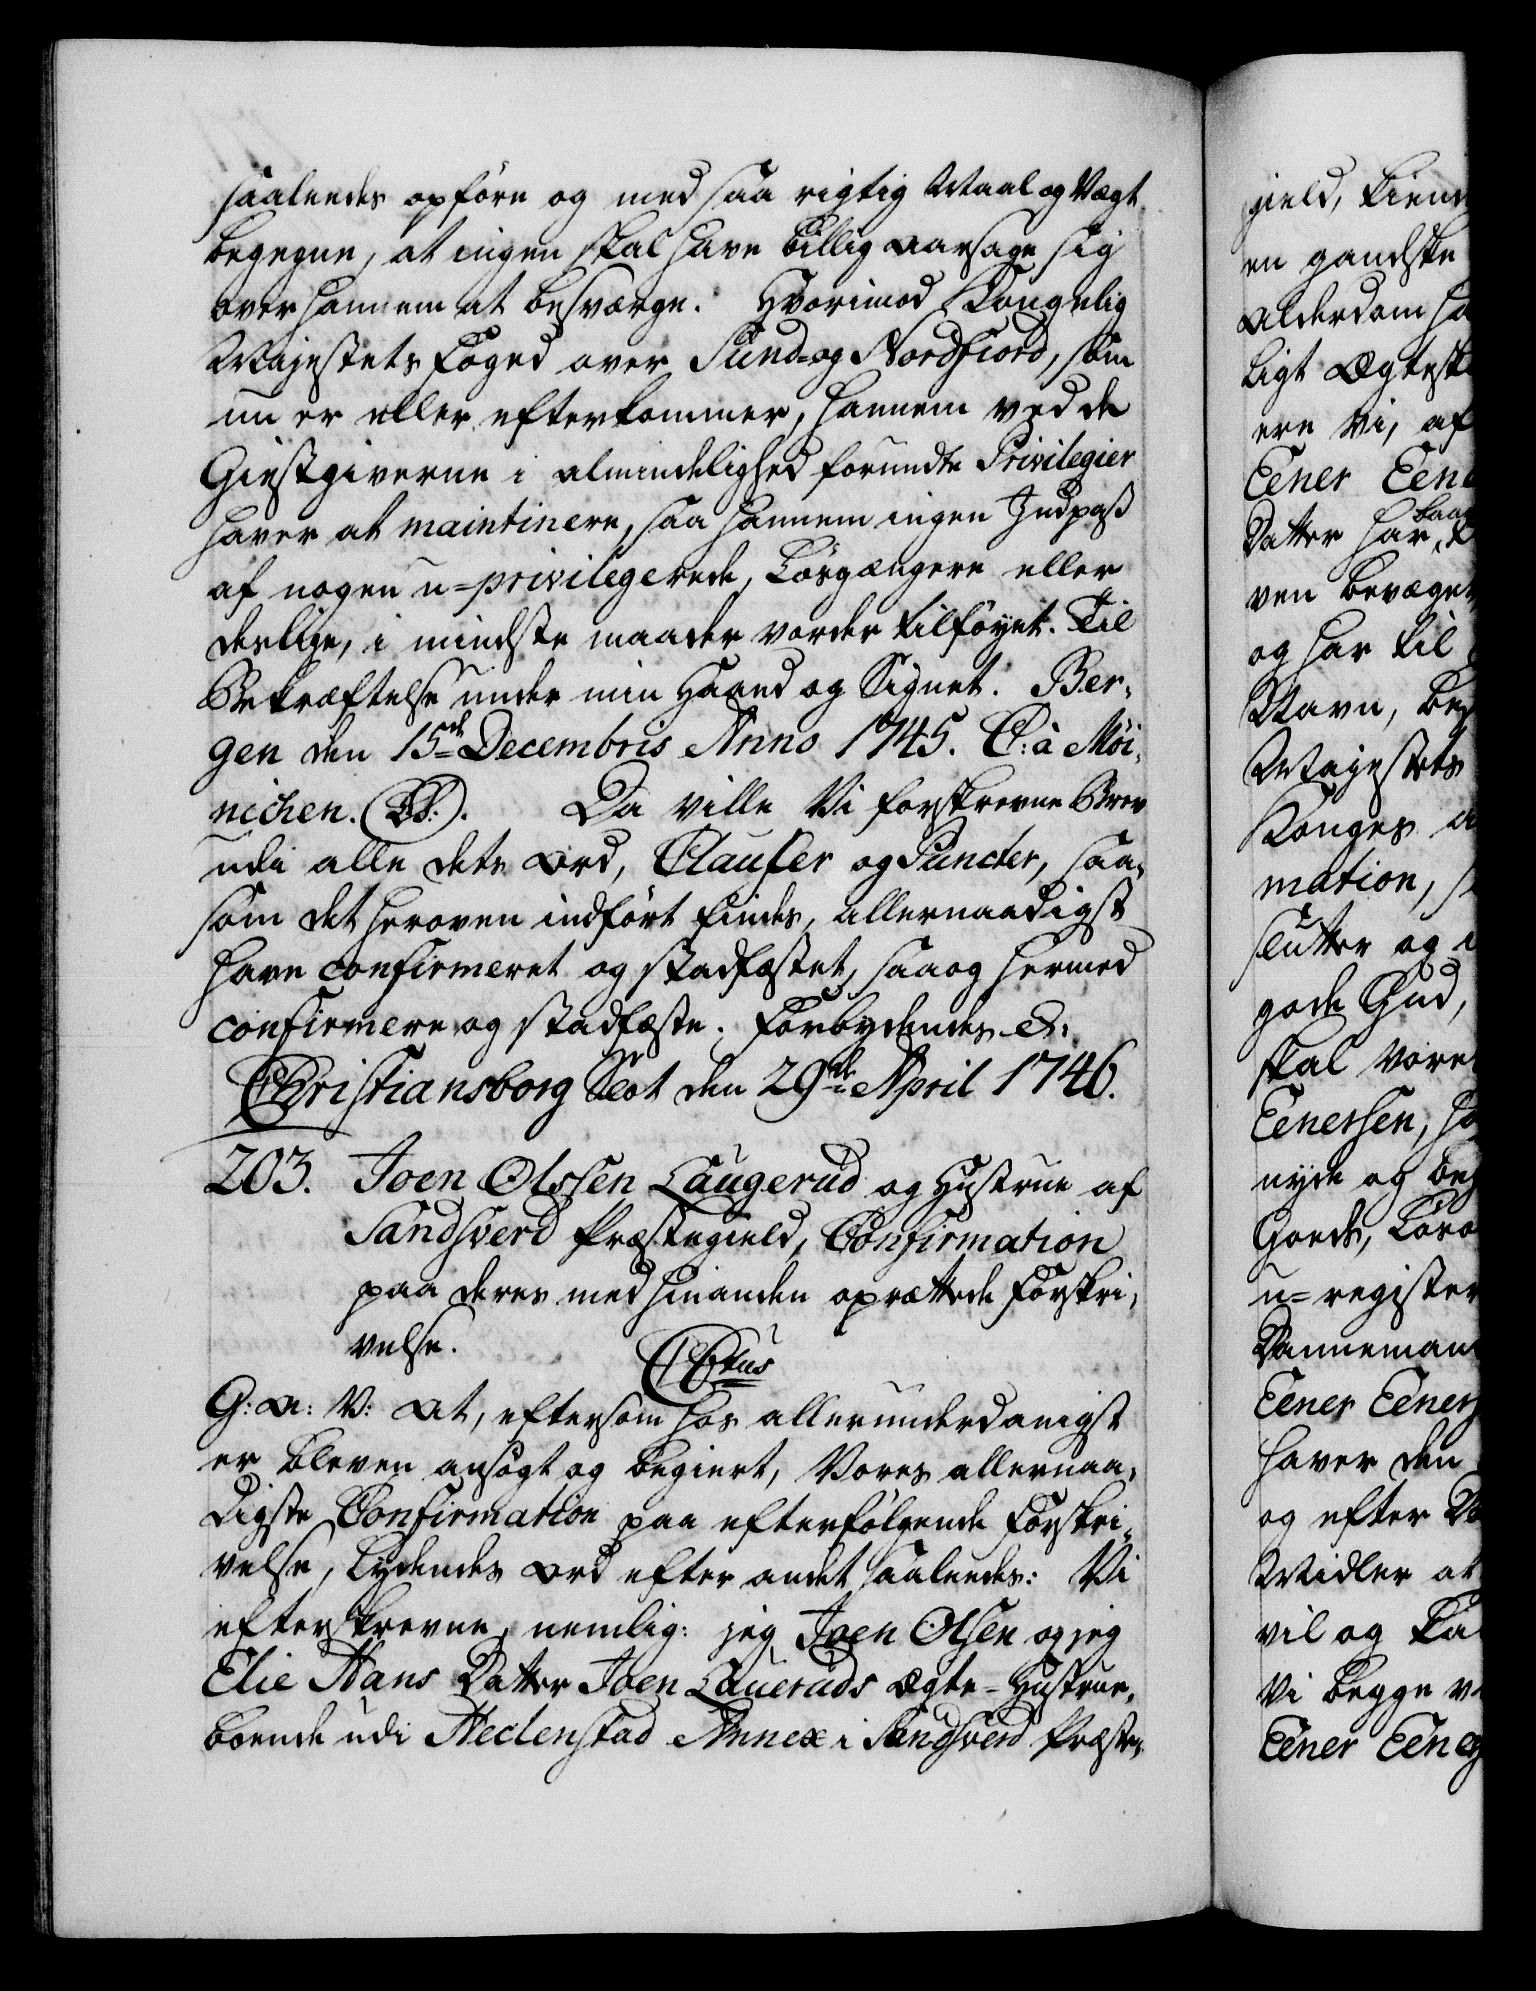 saaledes opføre og med saa rigtig Maal og Vegt
begegne, at ingen skal have billig aarsage sig
over hannem at besværge. Hvorimod Kongelig
Majestets Foged over Sund- og Nordfiord, som
nu er eller efterkommer, hannem ved de
Giestgiverne i almindelighed forundte Privilegier
haver at maintinere, saa hannem ingen Indpass
af nogen u-privilegerede, Løsgængere eller
deslige, i mindste maader vorder tilføyet. Til
Bekræftelse under min Haand og Signet. Ber-
gen den 15de Decembris Anno 1745. C: à Möi-
nichen. (LS.). Da ville Vi forskrevne Brev
udi alle dets Ord, Clausler og Puncter, saa-
som det heroven indført findes, allernaadigst
have confirmeret og stadfæstet, saa og hermed
confirmere og stadfæste. Forbydendes &.
Christiansborg Slot den 29de April 1746.
203. Joen Olssen Laugerud og Hustrue af
Sandsverd Præstegield, Confirmation
paa deres med hinanden oprættede Forskri-
velse.
C6tus
G: A: V: At, eftersom hos allerunderdanigst
er bleven ansøgt og begiert, Vores allernaa-
digste Confirmation paa efterfølgende Forskri-
velse, lydendes Ord efter andet saaledes: Vi
efterskrevne, nemlig: jeg Joen Olsen og jeg
Elie Hans Datter Joen Laueruds Ægte-Hustrue,
boende udi Hedenstad Annex i Sandsverd Præste-
gield, kiend
en gandske
Alderdom ha
ligt Ægtesk
ere vi, af
Eener Een
Datter har
ven bevæget
og har til
Navn, be
Majestets
Konges a
mation, s
slutter og i
gode Gud,
skal vore
Eenersen, ha
nyde og be
Goeds, Løsø
u-register
Dannemæn
Eener Eeners
haver den
og efter Vo
Midler at
vil og ka
Vi begge v
Eener Eeners